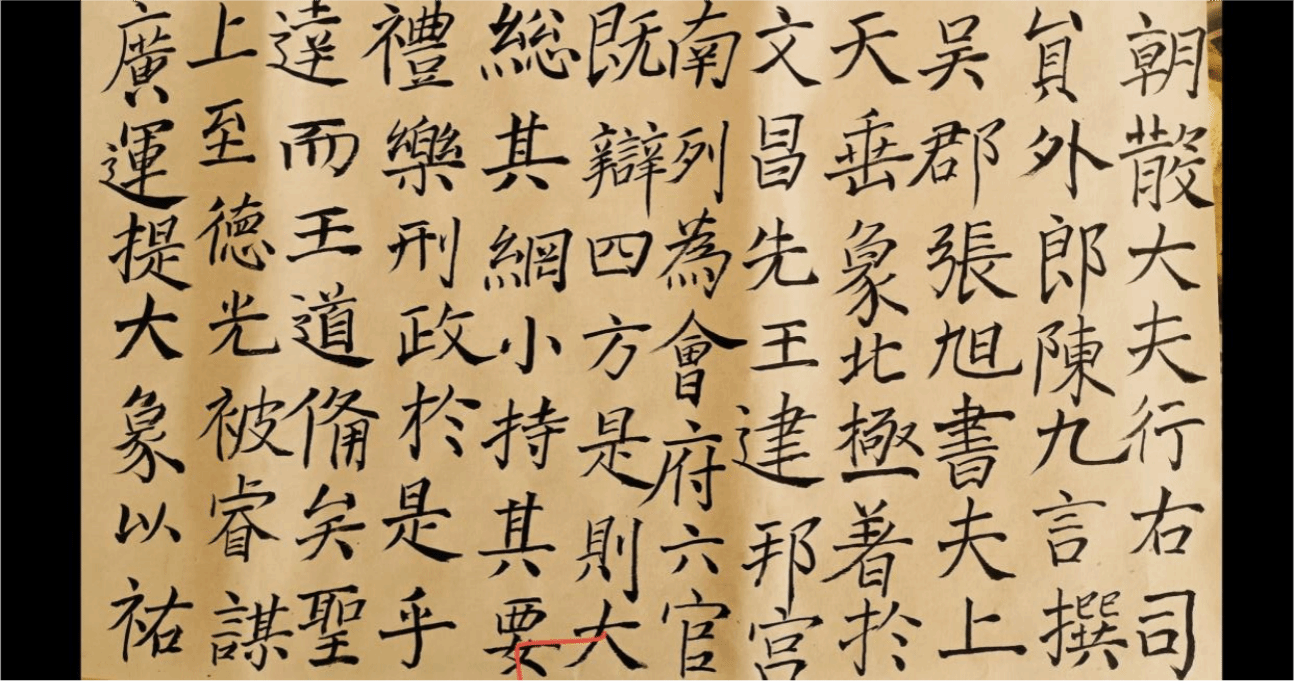 朝散大夫行右司
員外郎陳九言撰
吳郡張旭書夫上
天垂象北極著於
文昌先王建邦宮
南列為會府六官
既辯四方是則大
總其綱小持其要
禮樂刑政於是乎
達而王道備矣聖
上至德光被睿謀
廣運提大象以祐